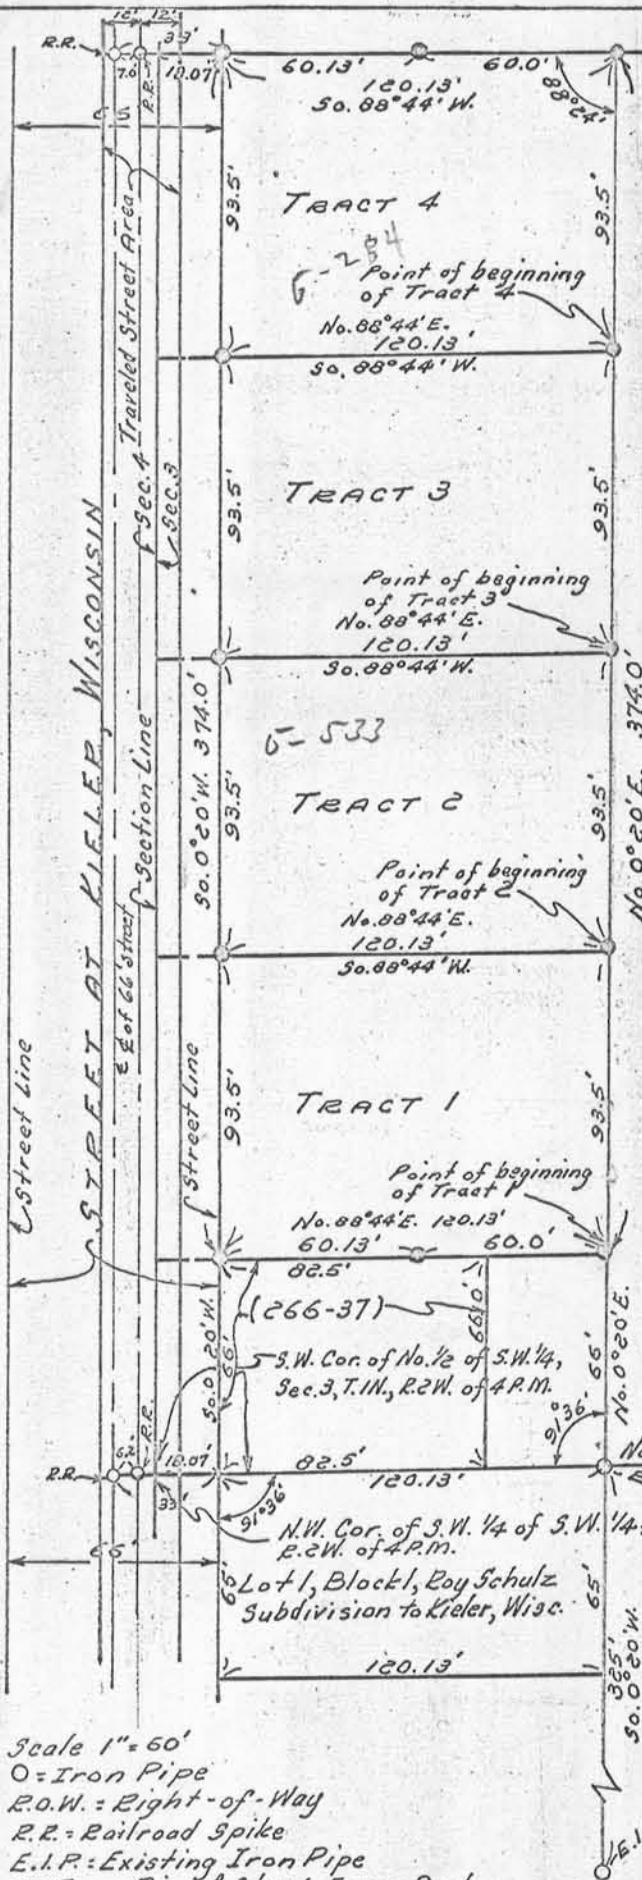 12' 12'
33'
R.R.
7.6
R.R.
18.07'
60.13' 60.0'
120.13'
So. 88°44' W.
88°24'
93.5'
TRACT 4
93.5'
Traveled Street Area
Point of beginning
of Tract 4
No. 88°44' E.
120.13'
So. 88°44' W.
Sec. 4
Sec. 3
93.5'
TRACT 3
93.5'
Point of beginning
of Tract 3
No. 88°44' E.
120.13'
So. 88°44' W.
STREET AT KIELER, WISCONSIN
Section Line
℄ of 66' street
So. 0°20' W. 374.0'
No. 0°20' E. 374.0'
5-533
93.5'
TRACT 2
93.5'
Point of beginning
of Tract 2
No. 88°44' E.
120.13'
So. 88°44' W.
Street Line
Street Line
93.5'
TRACT 1
93.5'
Point of beginning
of Tract 1
No. 88°44' E. 120.13'
60.13' 60.0'
82.5'
(266-37)
66.0'
So. 0°20' W.
66'
66'
No. 0°20' E.
S.W. Cor. of No. ½ of S.W. ¼,
Sec. 3, T.1N., R.2W. of 4 P.M.
91°36'
R.R.
R.R.
18.07'
82.5'
120.13'
33'
91°36'
N.W. Cor. of S.W. ¼ of S.W. ¼
R.2W. of 4 P.M.
66'
65'
Lot 1, Block 1, Roy Schulz
Subdivision to Kieler, Wisc.
65'
120.13'
325'
So. 0°20' W.
Scale 1" = 60'
O = Iron Pipe
R.O.W. = Right-of-Way
R.R. = Railroad Spike
E.I.P. = Existing Iron Pipe